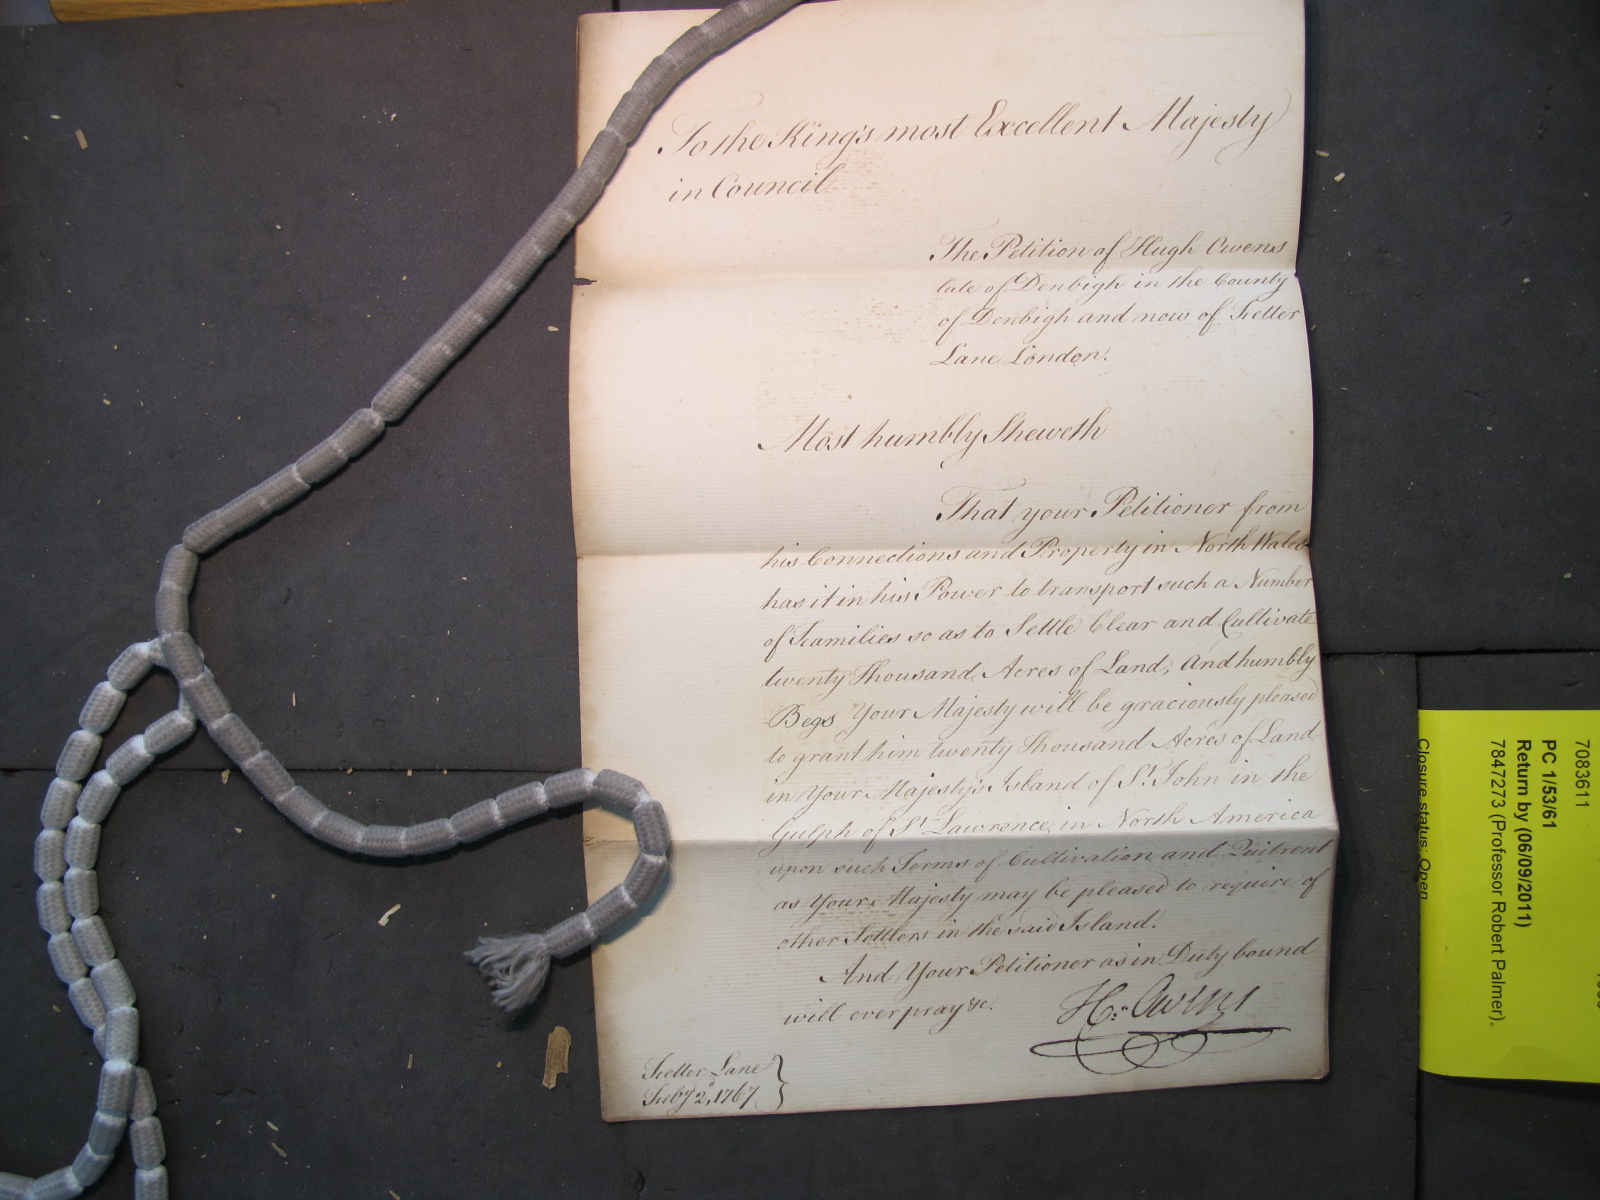 To the King's most Excellent Majesty
in Council
The Petition of Hugh Owens
late of Denbigh in the County
of Denbigh and now of Fetter
Lane London.
Most humbly Sheweth
That your Petitioner from
his Connections and Property in North Wales
has it in his Power to transport such a Number
of Families so as to Settle Clear and Cultivate
twenty thousand Acres of Land, And humbly
Begs Your Majesty will be graciously pleased
to grant him twenty thousand Acres of Land
in Your Majesty's Island of St. John in the
Gulph of St. Lawrence in North America
upon such Terms of Cultivation and Quitrent
as Your Majesty may be pleased to require of
other Settlers in the said Island.
And Your Petitioner as in Duty bound
will ever pray &c.
H: Owens
Fetter Lane
Feby 2d, 1767
7083611
PC 1/53/61
Return by (06/09/2011)
7847273 (Professor Robert Palmer),
Closure status: Open